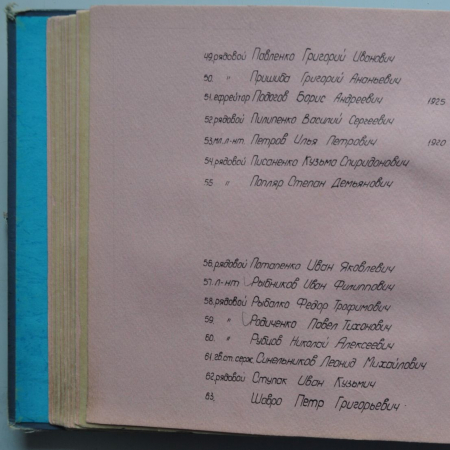 49. рядовой Павленко Григорий Иванович
50. " Пришива Григорий Ананьевич
51. ефрейтор Подогов Борис Андреевич 1925
52. рядовой Пилипенко Василий Сергеевич
53. мл. л-нт Петров Илья Петрович 1920
54. рядовой Писаненко Кузьма Спиридонович
55 " Попляр Степан Демьянович
56. рядовой Потапенко Иван Яковлевич
57. л-нт Рыбников Иван Филиппович
58. рядовой Рыбалко Федор Трофимович
59. " Радиченко Павел Тихонович
60. " Рубцов Николай Алексеевич
61. гв. ст. серж. Синельников Леонид Михайлович
62. рядовой Ступак Иван Кузьмич
63. Шавро Петр Григорьевич